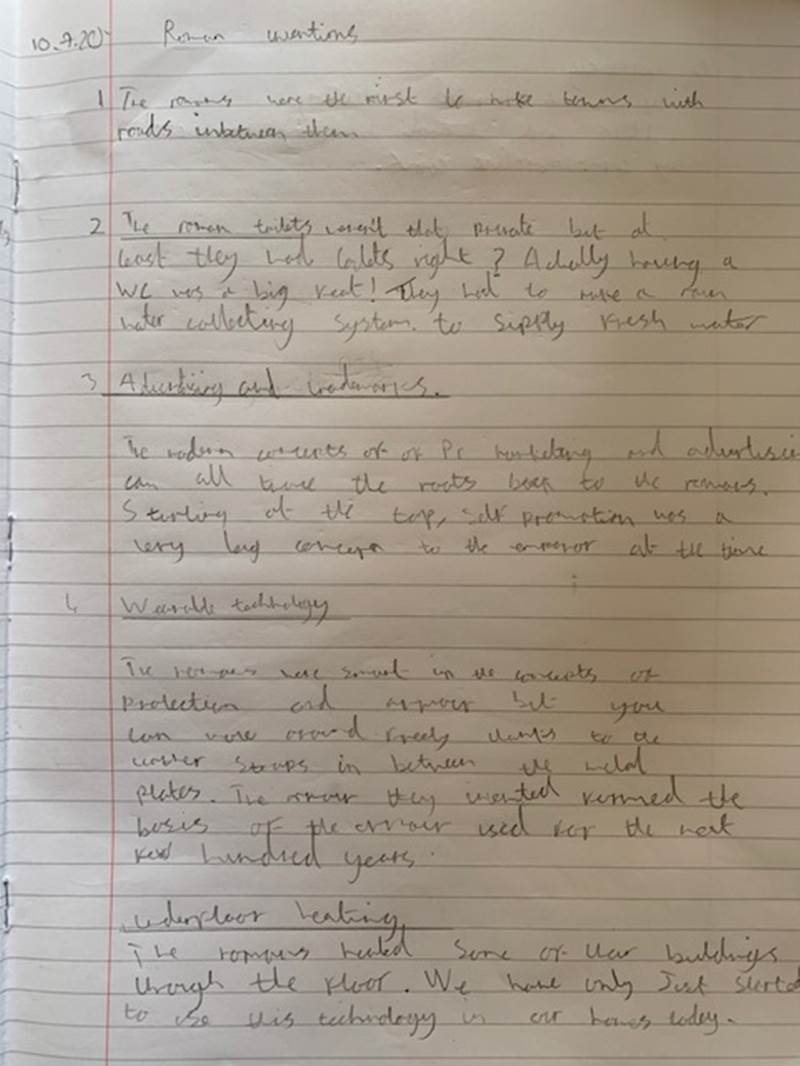 10.7.20 Roman inventions
1 The romans were the first to make towns with
roads inbetween them
2 The roman toilets weren't that private but at
least they had toilets right? Actually having a
WC was a big feat! They had to make a rain
water collecting system. to supply fresh water
3 Advertising and trademarks.
The modern concepts of of Pr marketing and advertisi
can all trace the roots back to the romans.
Starting at the top, self promotion was a
very big concept to the emperor at the time
4 Wearable technology
The romans were smart in the concepts of
protection and armour but you
can move around freely thanks to the
leather straps in between the metal
plates. The armour they invented formed the
basis of the armour used for the next
few hundred years.
underfloor heating
The romans heated some of their buildings
through the floor. We have only Just started
to use this technology in our homes today.